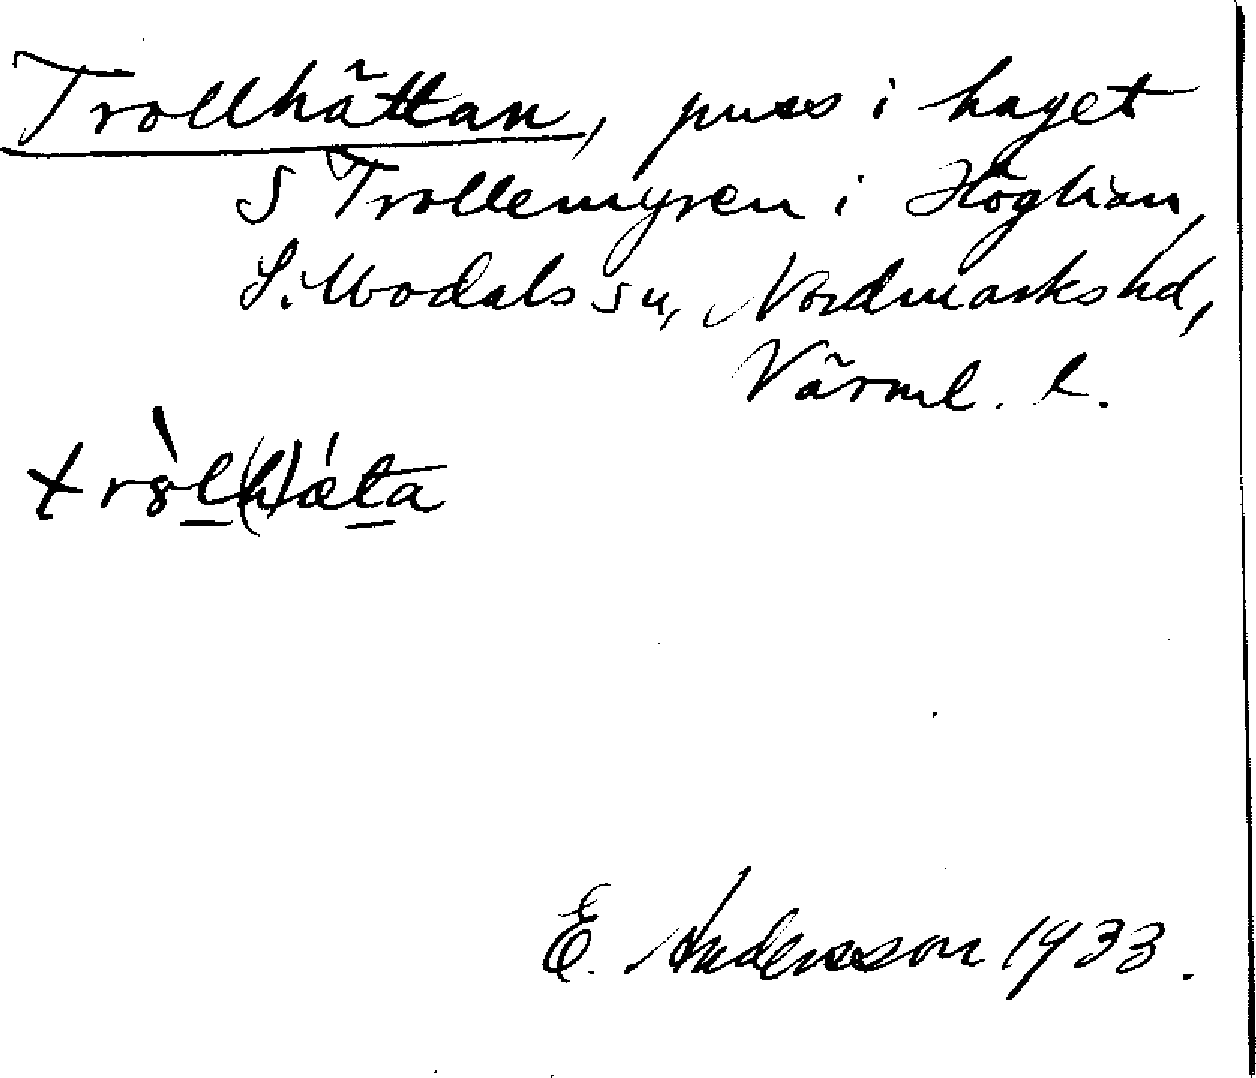 Trollhättan, puss i haget
S Trollemyren i Höglian,
S. Modals sn, Nordmarks hd,
Värml. l.
tròl(h)ǽta
E. Andersson 1933.